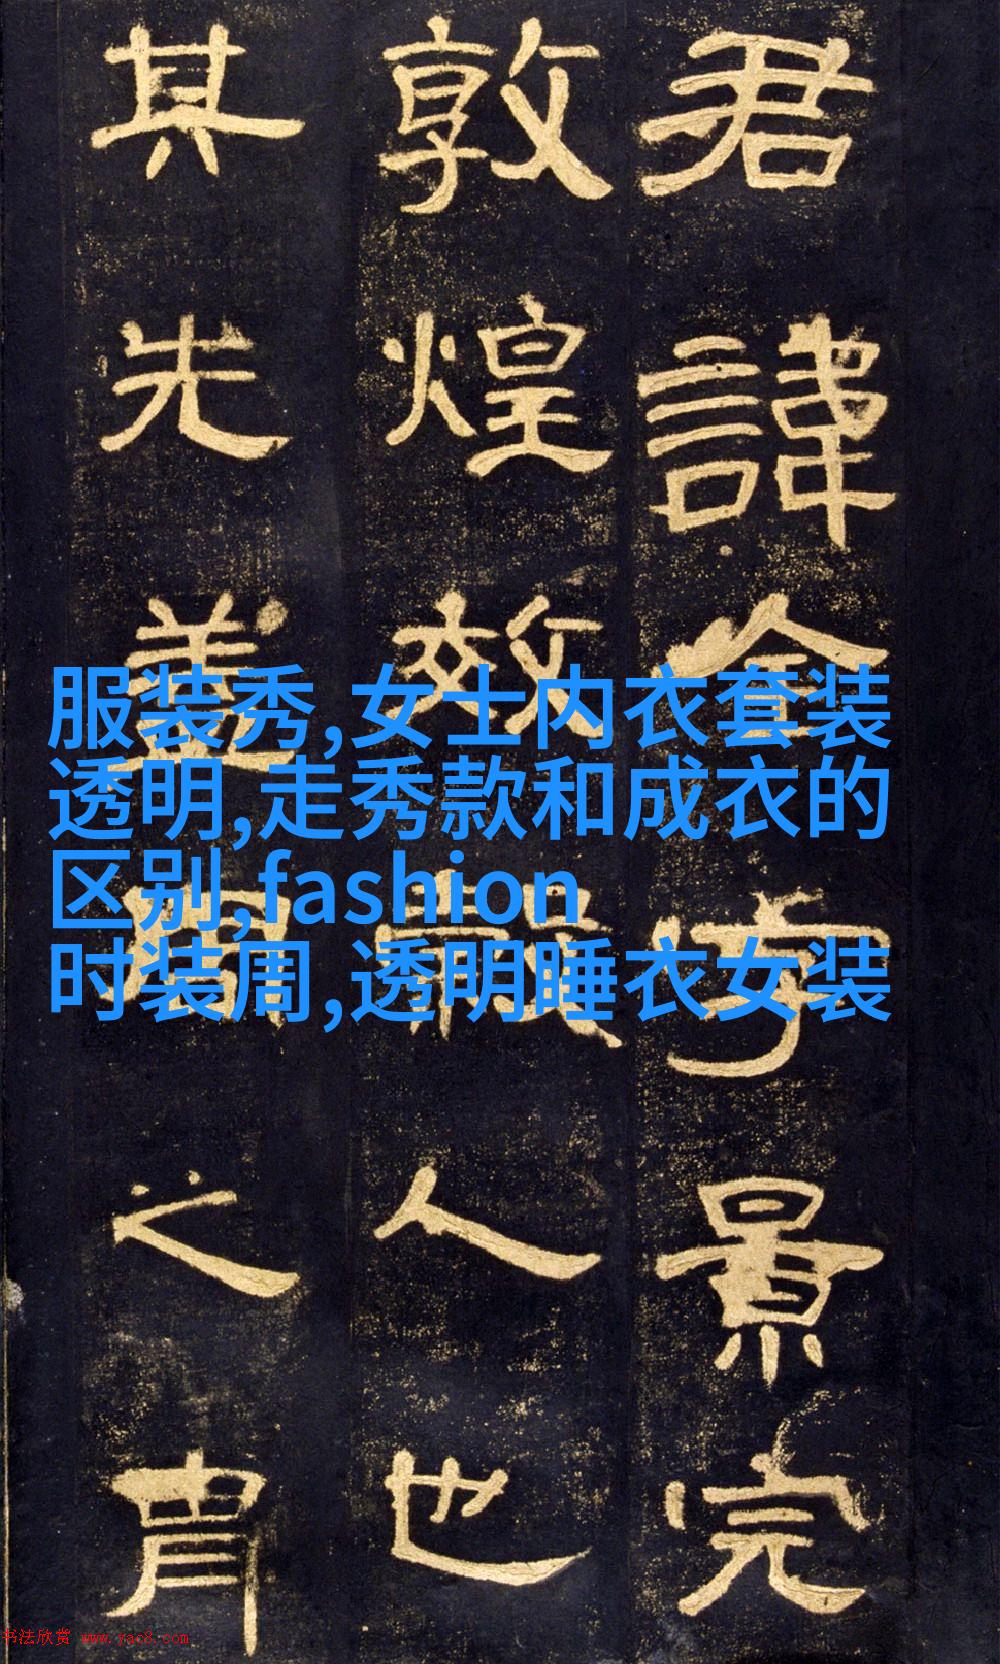 君諱全字景完
敦煌效穀人也
其先蓋周之胄
服装秀,女士内衣套装
透明,走秀款和成衣的
区别,fashion
时装周,透明睡衣女装
书法欣赏 www.yac8.com